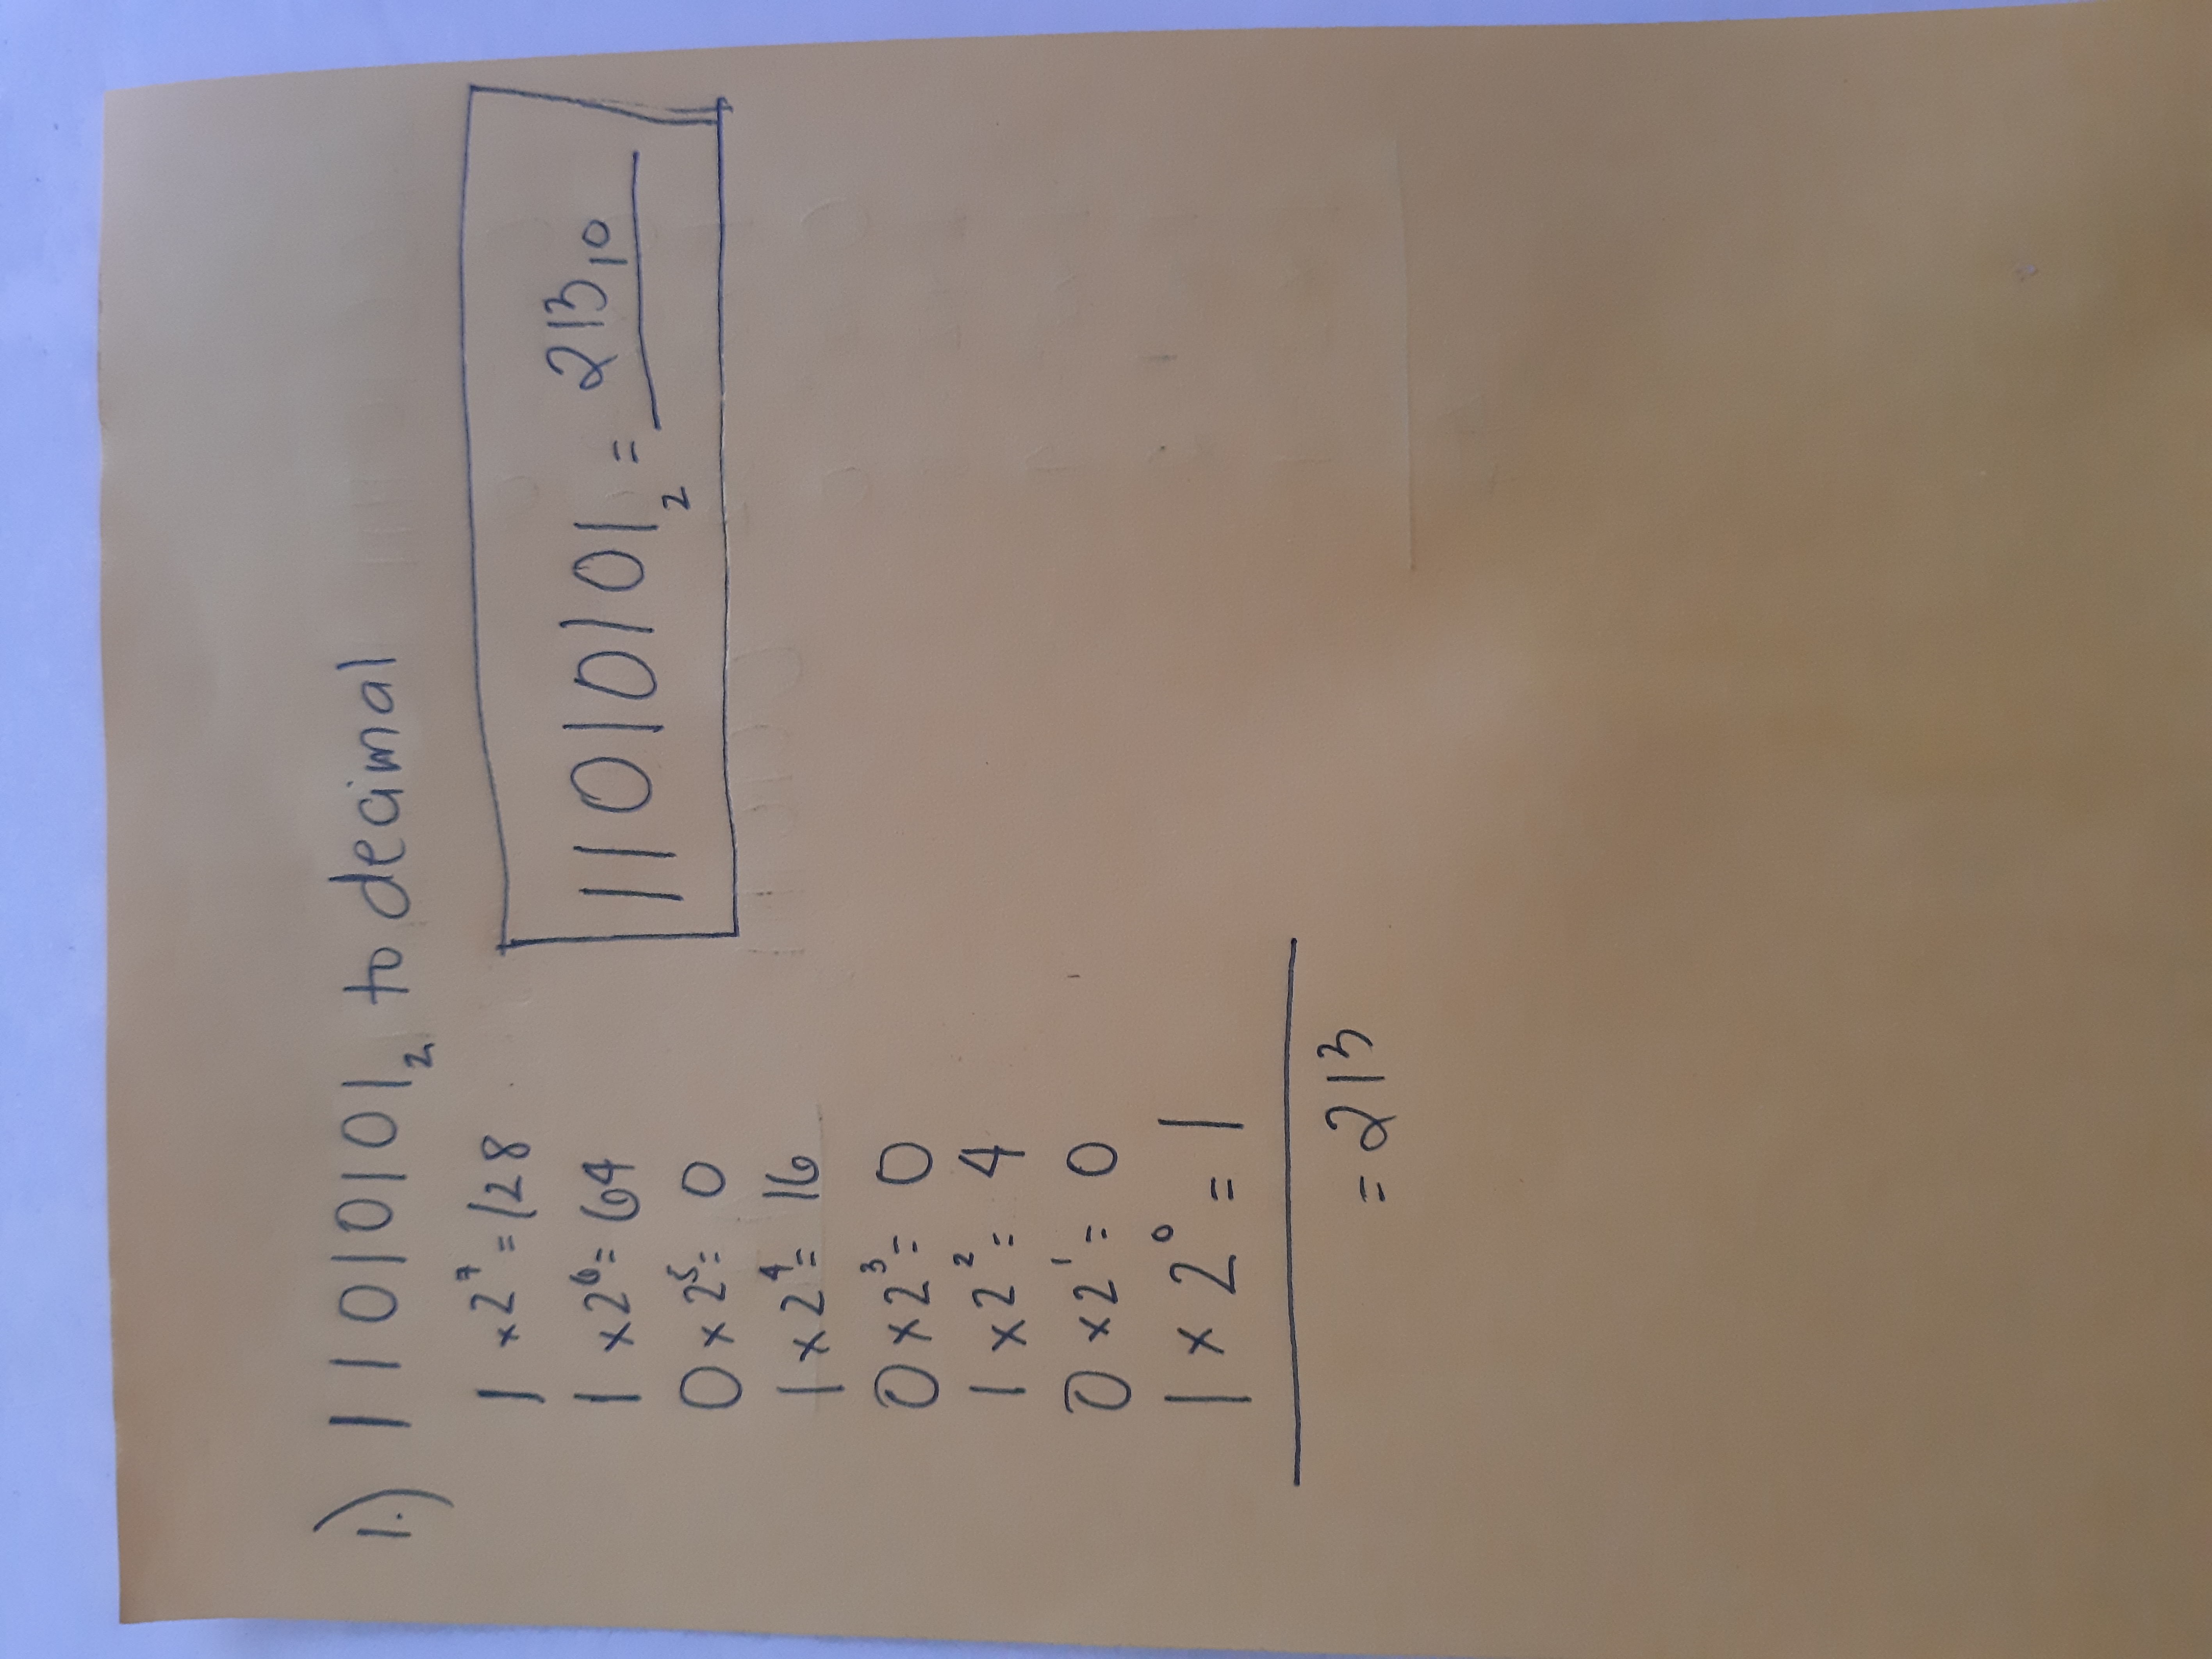 1.) 11010101₂ to decimal
1 × 2⁷ = 128
1 × 2⁶ = 64
0 × 2⁵ = 0
1 × 2⁴ = 16
0 × 2³ = 0
1 × 2² = 4
0 × 2¹ = 0
1 × 2⁰ = 1
= 213
11010101₂ = 213₁₀